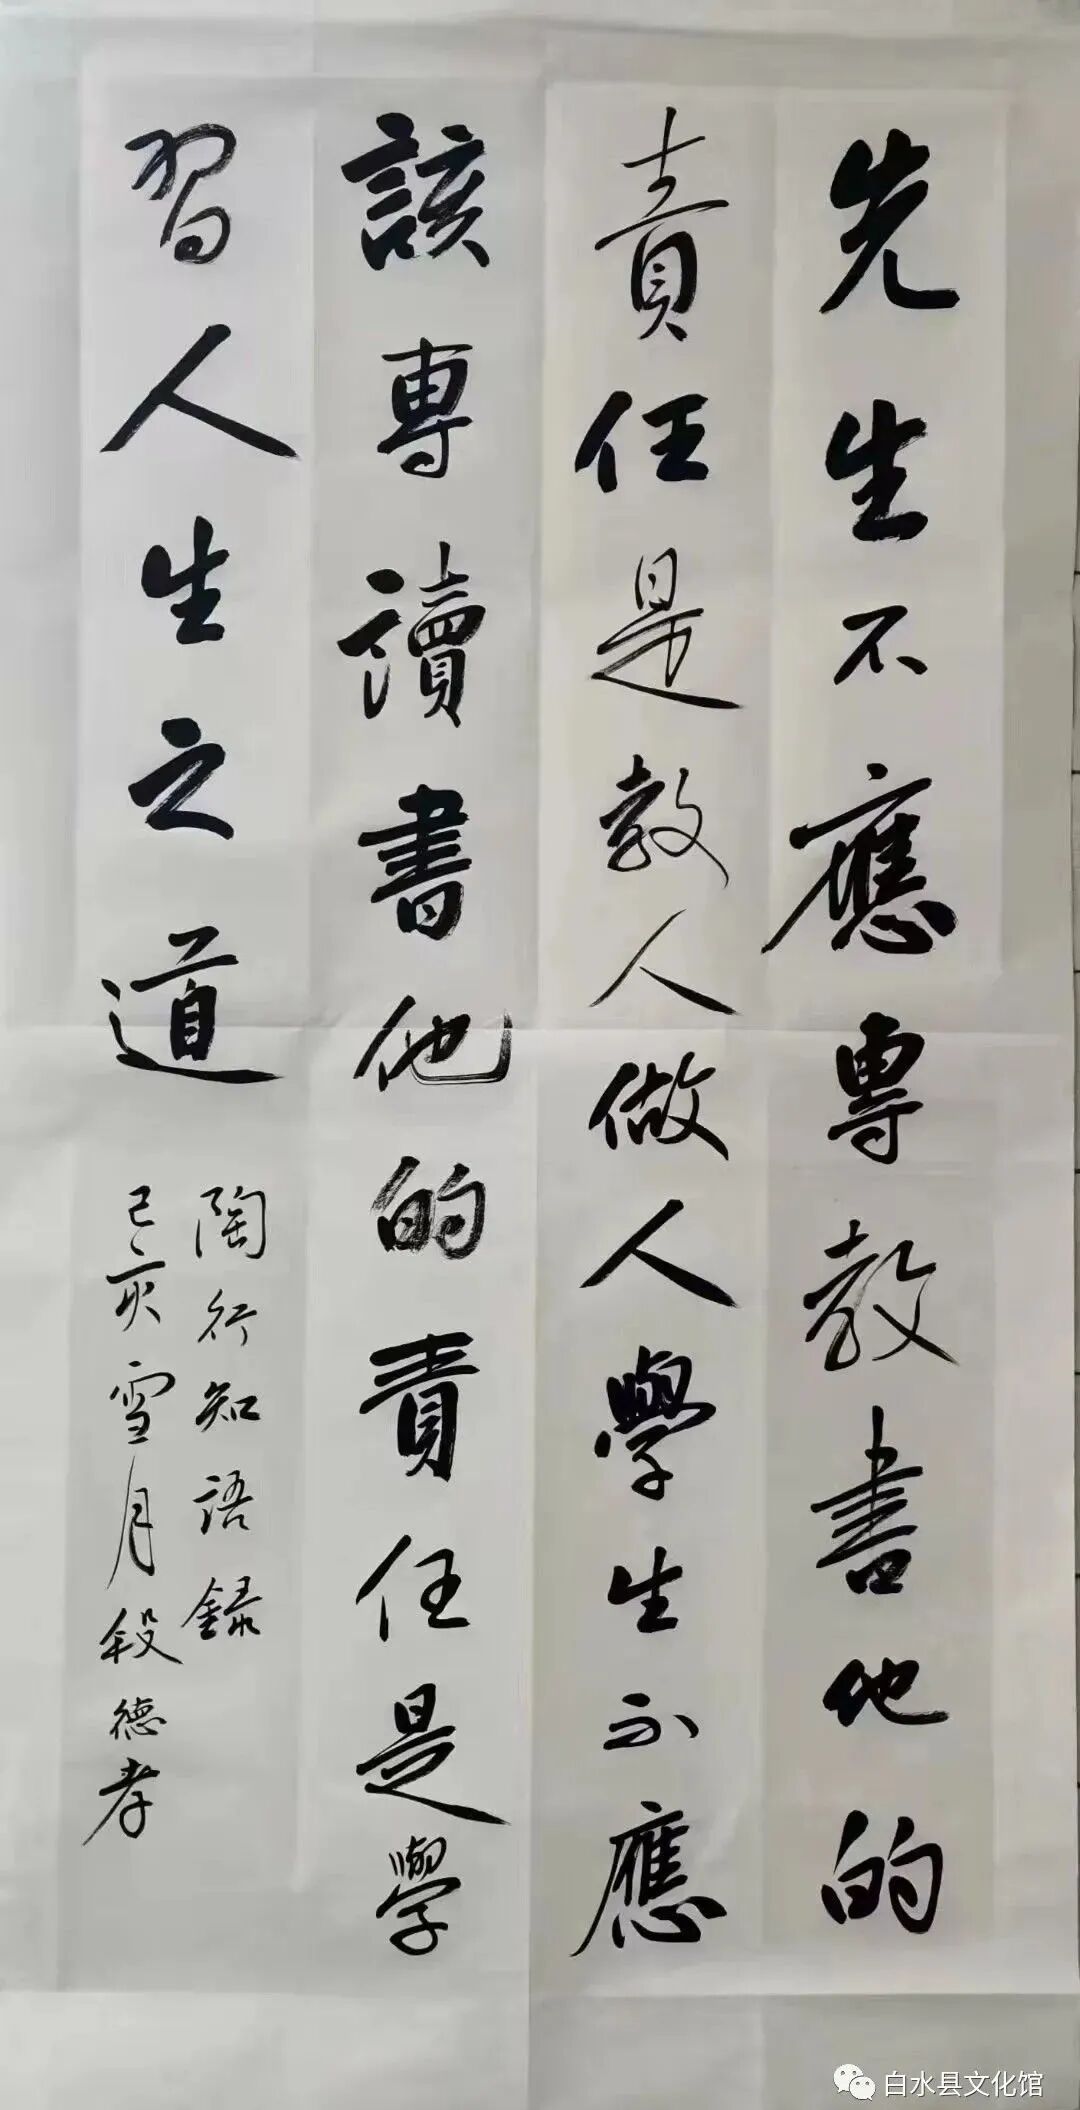 先生不應專教書他的
責任是教人做人學生不應
該專讀書他的責任是學
習人生之道
陶行知語録
己亥雪月段德孝
白水县文化馆